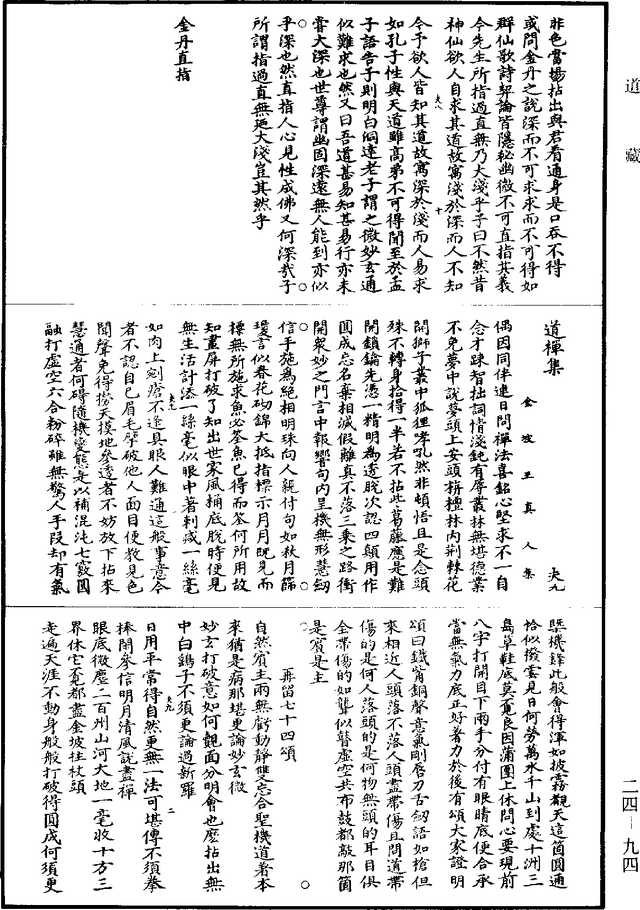 道藏
昨色當揚拈出與君看通身是口吞不得
或問金丹之說深而不可求求而不可得如
群仙歌詩評論皆隱祕幽微不可直指其義
今先生所指過直無乃大淺乎子曰不然昔
神仙欲人自求其道故寓淺於深而人不知
今予欲人皆知其道故寓深於淺而人易求
如孔子性與天道雖高弟不可得聞至於孟
子語告子則明白洞達老子謂之微妙玄通
似難求也然又曰吾道甚易知甚易行亦未
嘗大深也世尊謂幽固深遠無人能到亦似
乎深也然直指人心見性成佛又何深哉子
所謂指過直無迺大淺豈其然乎
金丹直指
道禪集
金坡王真人集 夾九
偶因同伴違日問禪法喜銘心堅求不一自
念才踈智拙詞情淺鈍有辱叢林無堪德業
不免夢中說夢頭上安頭栴檀林內荊棘花
開獅子叢中狐狸哮吼然非頓悟且是念頭
殊不轉身拾得一半若不拈此葛藤應是難
開鎖鑰先憑一精明為透脫次認四顛用作
圓成忘名棄相滅假離真不落三乗之路衝
開衆妙之門言中報響句內呈機無形慧劒
信手施為絕相明珠向人親付句如秋月篩
瓊言似春花砌錦大抵指標示月月既見而
標無所施求魚必筌魚已得而筌何所用故
知畫屏打破了知出世家風桶底脫時便見
無生活計添一絲毫似眼中著刺減一絲毫
如肉上剜瘡不逢具眼人難通這般事意今
者不認自己眉毛孽破他人面目便教見色
聞聲免得撈天摸地參透者不妨放下拈來
慧通者何碍隨機變態是以補混沌七竅圓
融打虛空六合粉碎雖無驚人手段却有氣
槩機鋒此般會得渾如披霧觀天這箇圓通
恰似撥雲見日何勞萬水千山到處十洲三
島草鞋底莫覔良因蒲團上休問心要現前
八字打開目下兩手分付有眼睛底便合承
當無氣力底正好著力於後有頌大家證明
頌曰鐵脊銅聲意氣剛唇刀舌劒語如槍但
來相近人頭落不落人頭盡帶傷且問道帶
傷的是何人落頭的是何物無頭的耳目俱
全帶傷的如聾似瞽虛空共布鼓都敲那箇
是賓是主
再留七十四頌
自然賓主兩無虧動靜雙忘合聖機道著本
來猶是病那堪更論妙玄微
妙玄打破意如何覿面分明會也麽拈出無
中白鷂子不須更論過新羅
日用平常得自然更無一法可堪傳不須拳
棒閑參信明月清風說盡禪
眼底微塵二百州山河大地一毫收十方三
界休它覔都盡金坡拄杖頭
走遍天涯不動身般般打破得圓成何須更
二四－九四